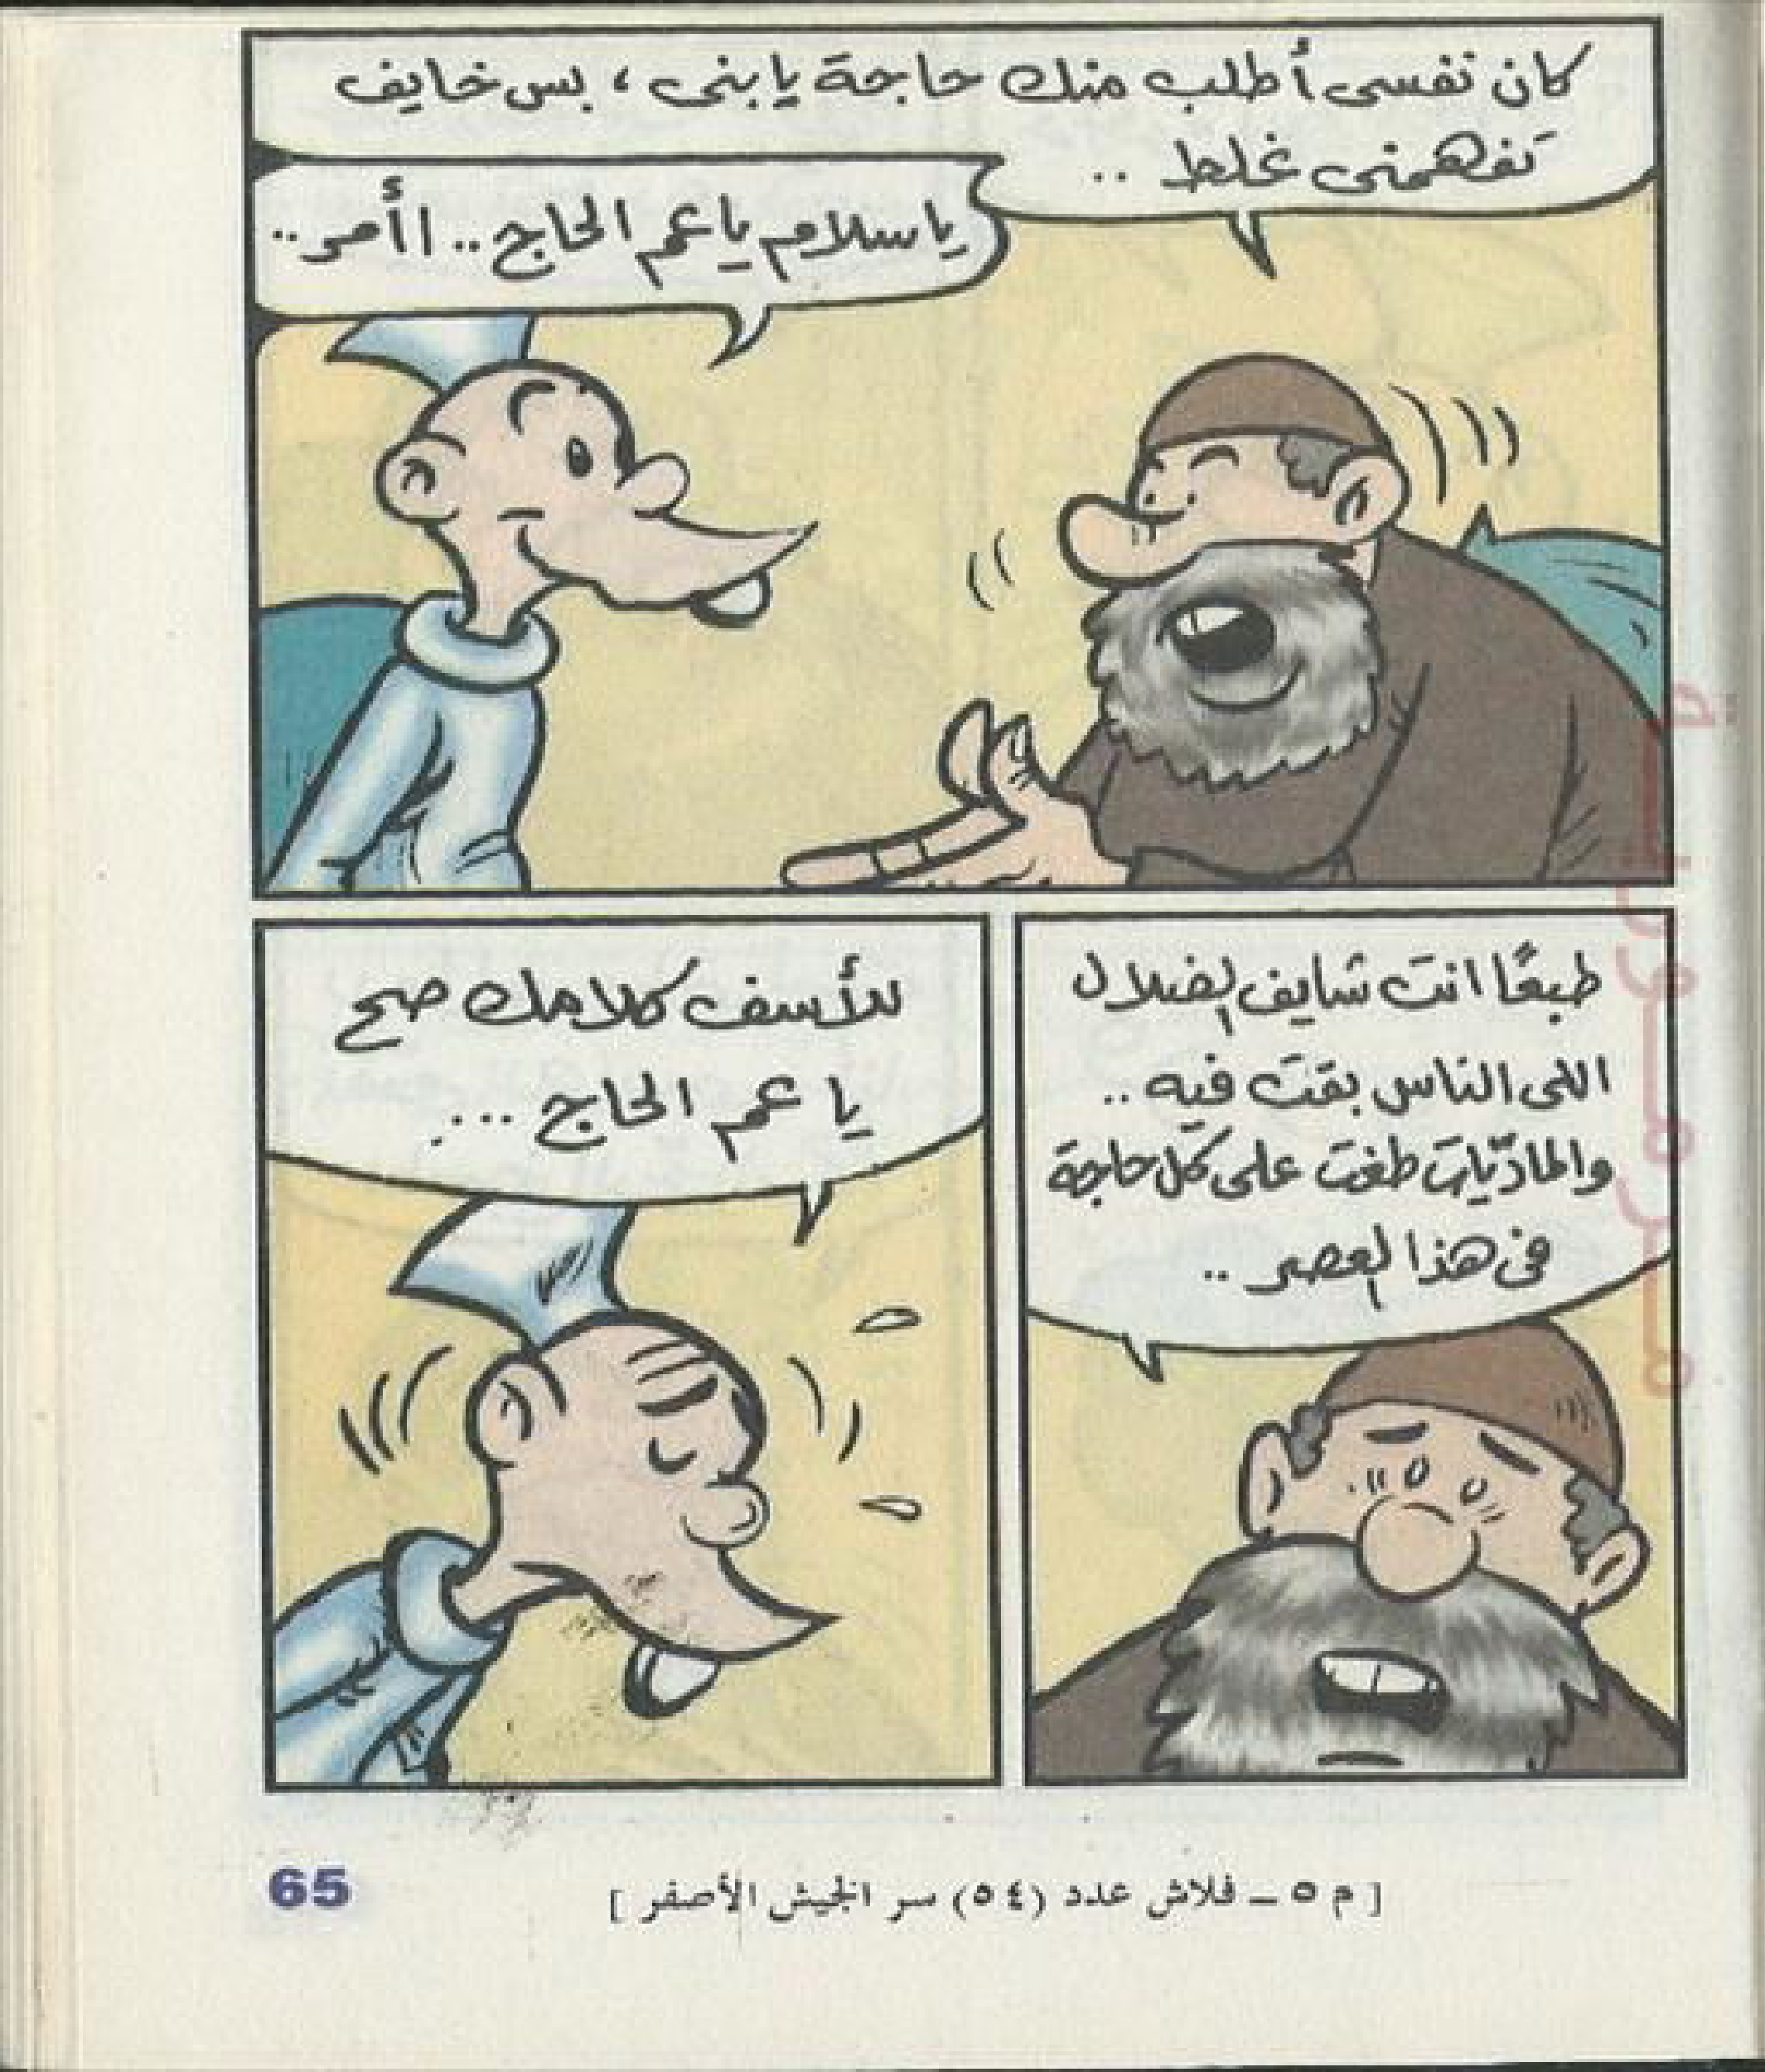 كان نفسى أطلب منك حاجة يابنى ، بس خايف
تفهمنى غلط ..
ياسلام ياعم الحاج .. اأمر ..
طبعًا انت شايف الضلال
اللى الناس بقت فيه ..
والماديّات طغت على كل حاجة
فى هذا العصر ..
للأسف كلامك صح
يا عم الحاج ...
[ م ٥ ــ فلاش عدد (٥٤) سر الجيش الأصفر ]
65